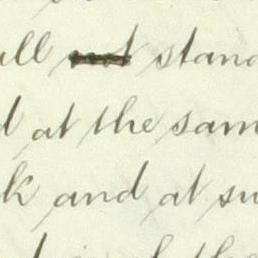 ull not stand
d at the sam
k and at su